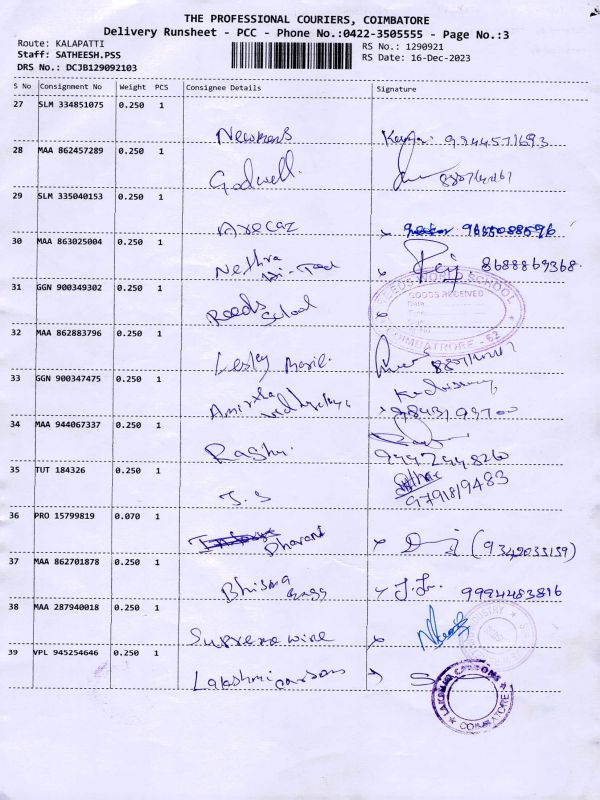 THE PROFESSIONAL COURIERS, COIMBATORE
Delivery Runsheet - PCC - Phone No.:0422-3505555 - Page No.:3
Route: KALAPATTI
Staff: SATHEESH.PSS
DRS No.: DCJB129092103
RS No.: 1290921
RS Date: 16-Dec-2023
S No Consignment No Weight PCS Consignee Details Signature
27 SLM 334851075 0.250 1
Newmens 9944571693
28 MAA 862457289 0.250 1
Godwell.
29 SLM 335040153 0.250 1
Arecaz 9665088596
30 MAA 863025004 0.250 1
Nethra Hi-Tech 8688869368.
31 GGN 900349302 0.250 1
Reeds School
REEDS WORLD SCHOOL
GOODS RECEIVED
Date
COIMBATORE - 62
32 MAA 862883796 0.250 1
Lesley Marie.
33 GGN 900347475 0.250 1
Amirtha Vidhyalaya
34 MAA 944067337 0.250 1
Rashmi. 94429448260
35 TUT 184326 0.250 1
J.S 9791819483
36 PRO 15799819 0.070 1
Dharani (9342033159)
37 MAA 862701878 0.250 1
Bhisma Bags 9994483816
38 MAA 287940018 0.250 1
Supreme wire
39 VPL 945254646 0.250 1
Lakshmi cartons
LAKSHMI CARTONS
COIMBATORE